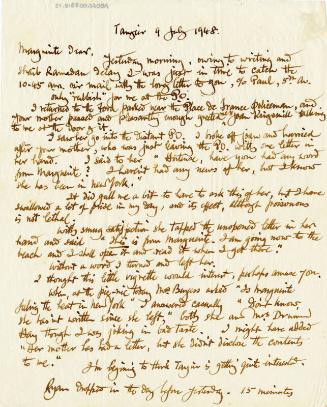 Tangier 9 July 1948.
Marguerite dear,
Yesterday morning, owing to writing and
Ramadan delay I was just in time to catch the
10.45 a.m. air mail with the long letter to you, % Paul, 5th Av.
only "rubbish" for me at the P.O.
I returned to the Ford parked near the Place de France policeman, and
your mother passed and pleasantly enough greeted John Kingsmill talking
to me at the door of it.
I saw her go into the distant P.O. I broke off and hurried
after your mother, who was just leaving the P.O. with one letter in
her hand. I said to her " have you had any word
from Marguerite? I haven't had any news of her, but I know
she has been in New York.
It did gall me a bit to have to ask this of her, but I have
swallowed a lot of pride in my day, and its effect, although poisonous
is not lethal.
With smug satisfaction she tapped the unopened letter in her
hand and said "This is from Marguerite. I am going now to the
beach and I shall open it and read it when I get there."
Without a word I turned and left her.
I thought this little vignette would interest, perhaps amuse you.
When, at the pic-nic today Mrs asked "Is Marguerite
feeling the heat in New York" I answered casually "I don't know,
she hasn't written since she left," both she and Mrs Drummond
Hay thought I was joking in bad taste. I might have added
"Her mother has had a letter, but she didn't disclose the contents
to me."
I'm beginning to think Tangier is getting quite
Ryan dropped in the day before yesterday. 15 minutes